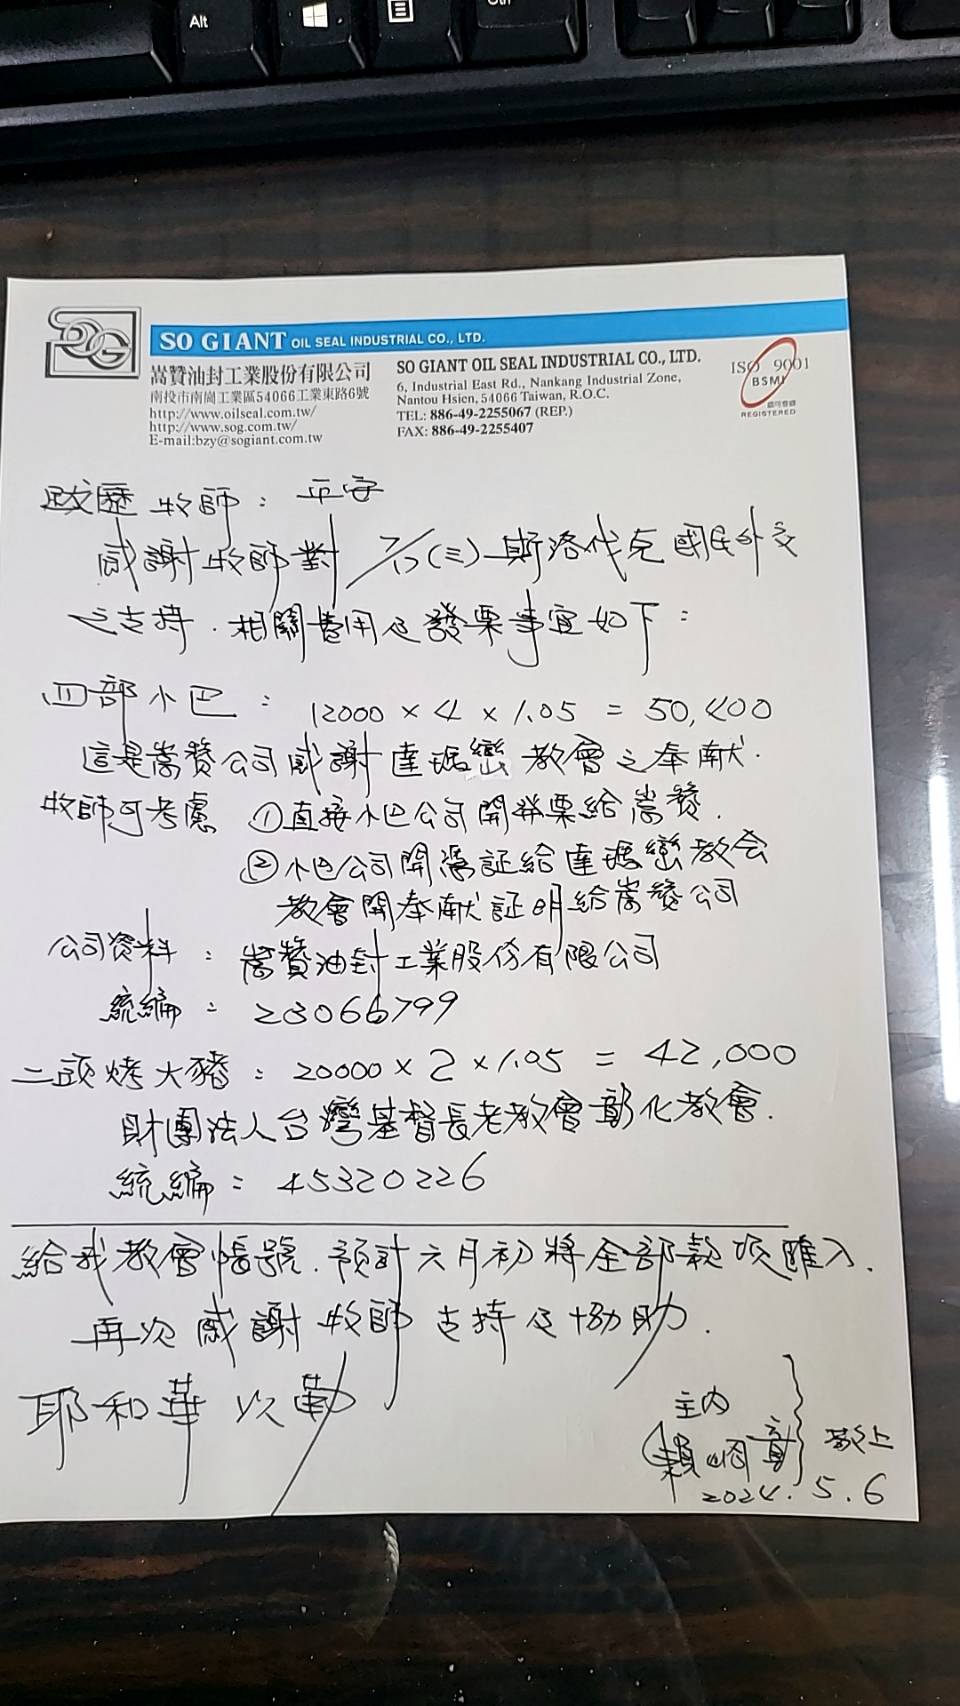 Alt
Ctrl
SOG
SO GIANT OIL SEAL INDUSTRIAL CO., LTD.
嵩贊油封工業股份有限公司
南投市南崗工業區54066工業東路6號
http://www.oilseal.com.tw/
http://www.sog.com.tw/
E-mail:bzy@sogiant.com.tw
SO GIANT OIL SEAL INDUSTRIAL CO., LTD.
6, Industrial East Rd., Nankang Industrial Zone,
Nantou Hsien, 54066 Taiwan, R.O.C.
TEL: 886-49-2255067 (REP.)
FAX: 886-49-2255407
ISO 9001
BSMI
REGISTERED
牧師：平安
感謝牧師對 7/17(三)斯洛伐克國民外交
之支持．相關費用及發票事宜如下：
四部小巴：12000 × 4 × 1.05 = 50,400
這是嵩贊公司感謝達瑪巒教會之奉献．
牧師可考慮 ①直接小巴公司開發票給嵩贊．
②小巴公司開憑証給達瑪巒教会
教會開奉献証明給嵩贊公司
公司資料：嵩贊油封工業股份有限公司
統編：23066799
二頭烤大豬：20000 × 2 × 1.05 = 42,000
財團法人台灣基督長老教會彰化教會．
統編：45320226
給我教會帳號．預計六月初將全部款項匯入．
再次感謝牧師支持及協助．
耶和華以勒
主內
賴明章 敬上
2024. 5. 6